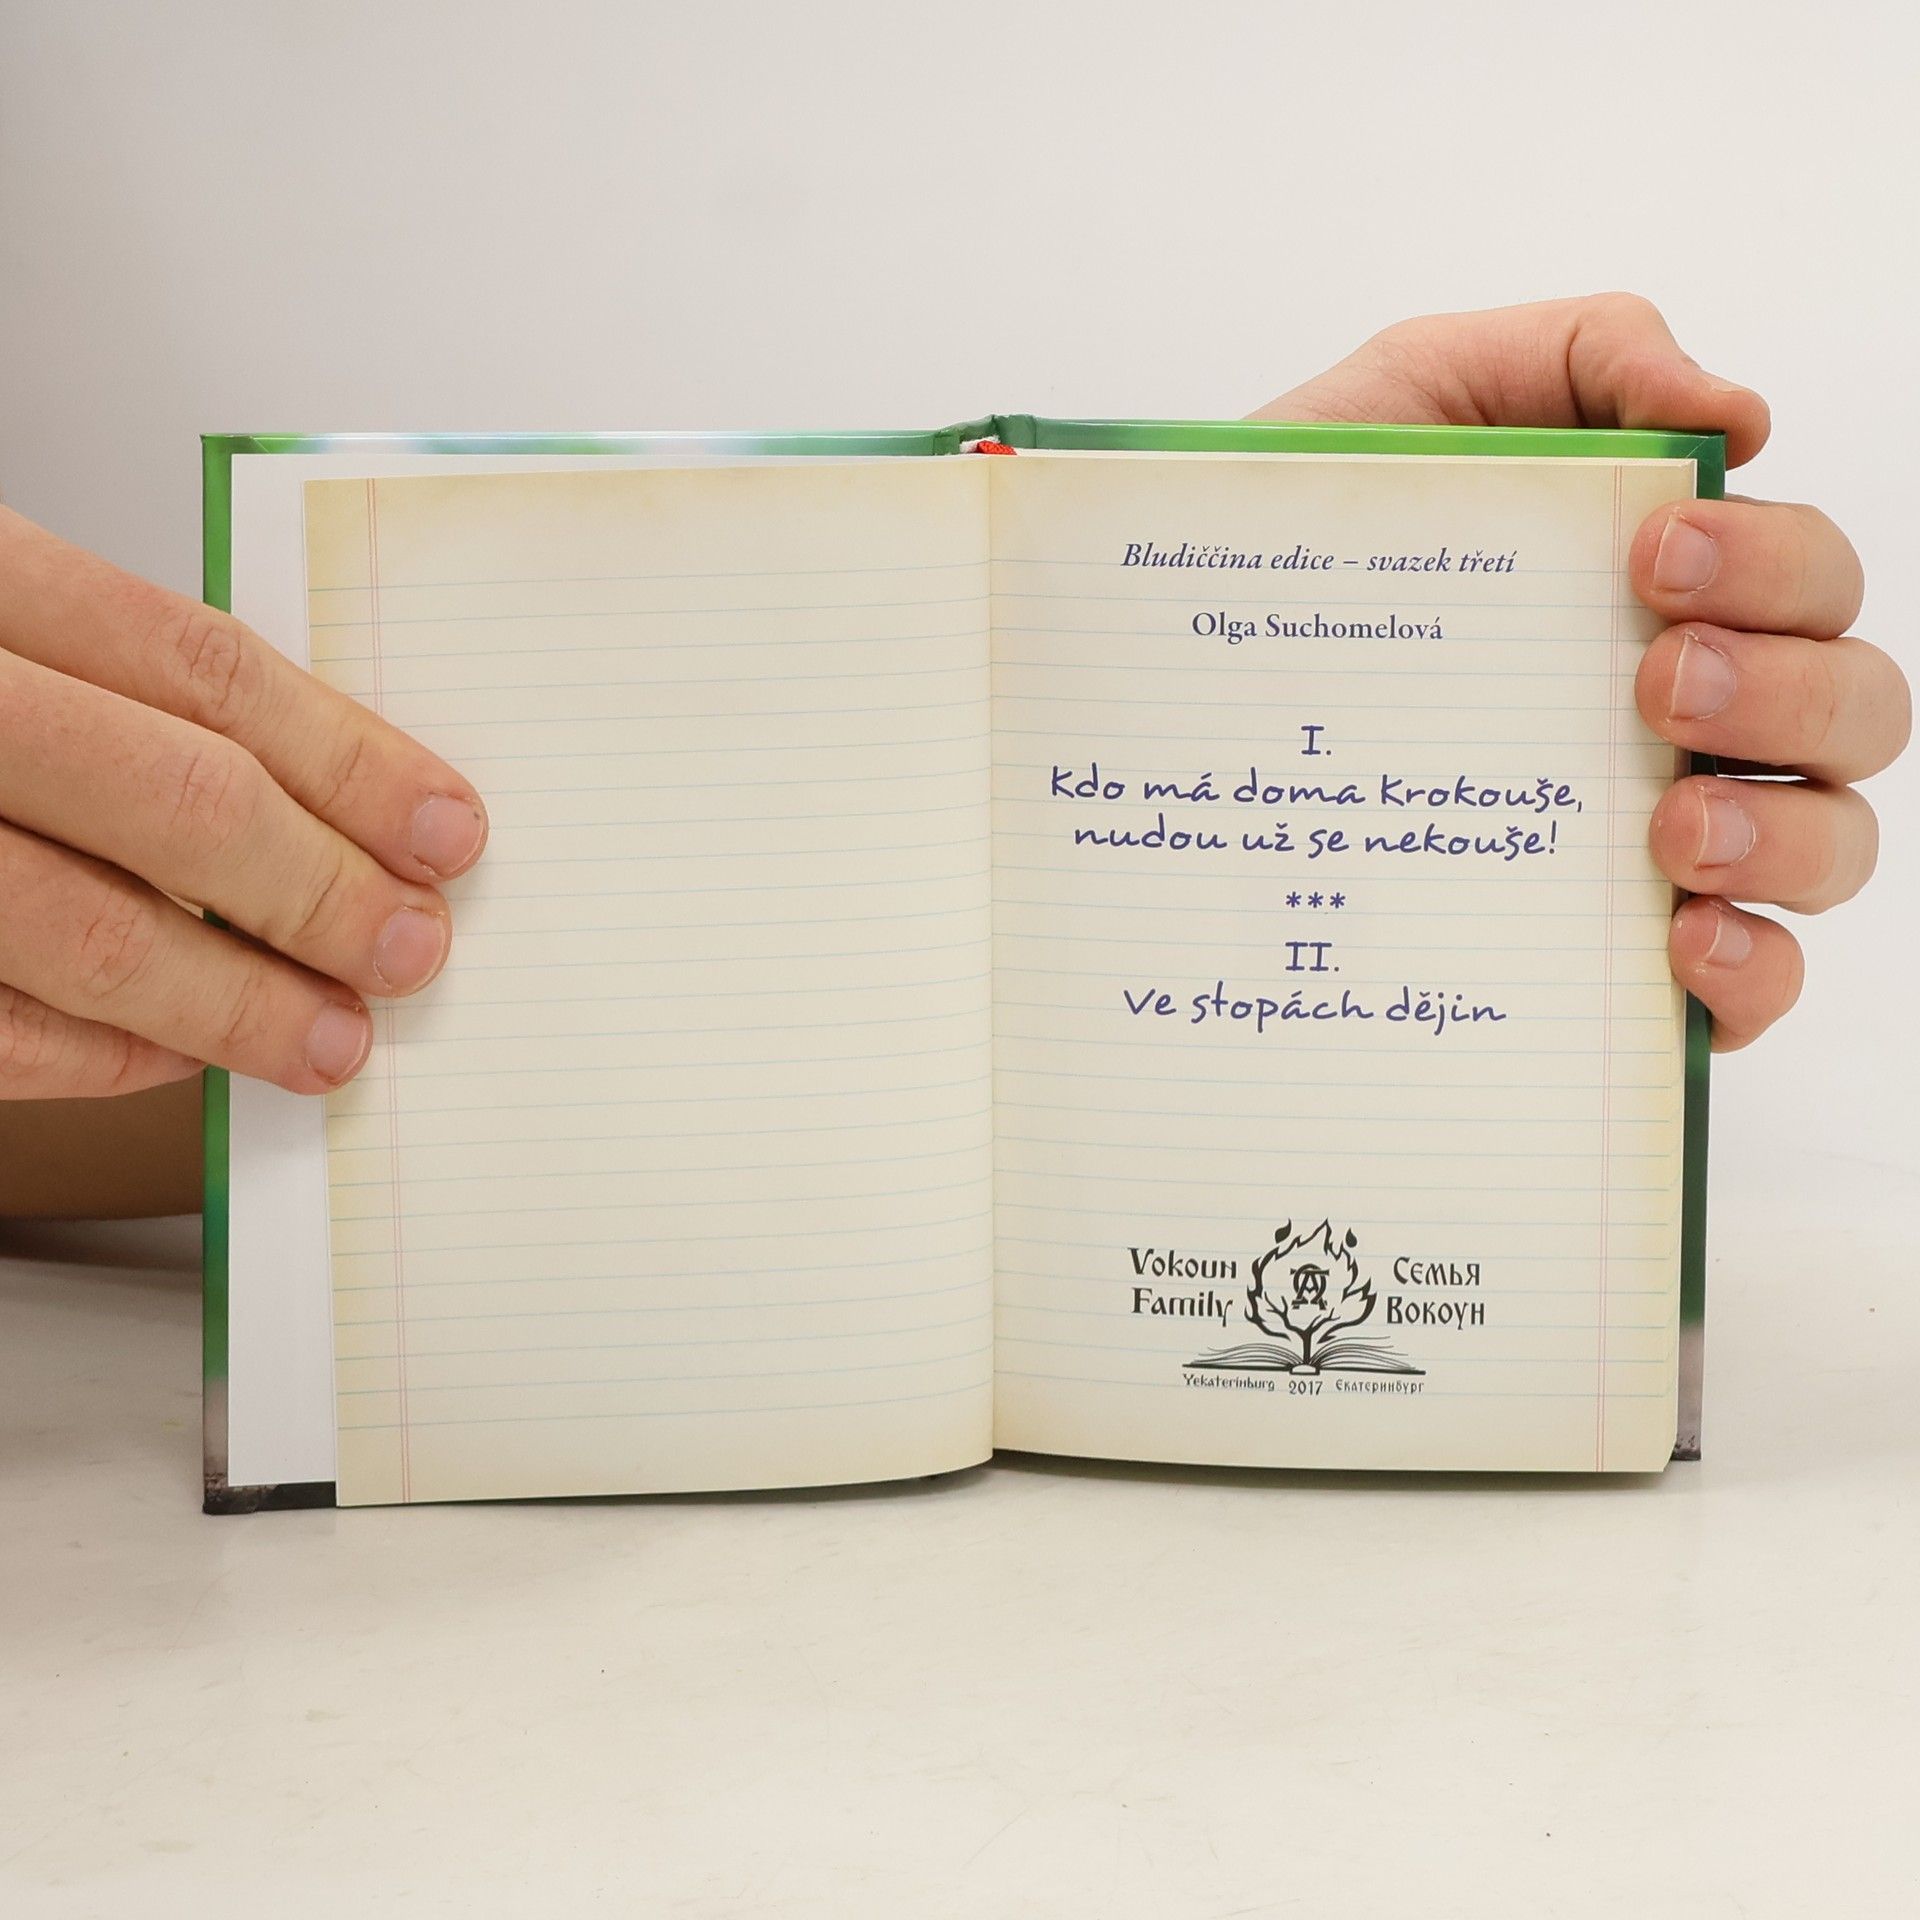 Bludiččina edice – svazek třetí
Olga Suchomelová
I.
Kdo má doma Krokouše,
nudou už se nekouše!
***
II.
Ve stopách dějin
Vokoun Семья
Family Вокоун
Yekaterinburg 2017 Екатеринбург